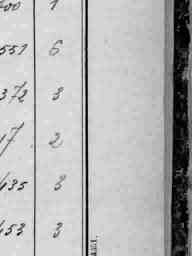 700 1
551 6
372 3
17. 2
435 3
453 3